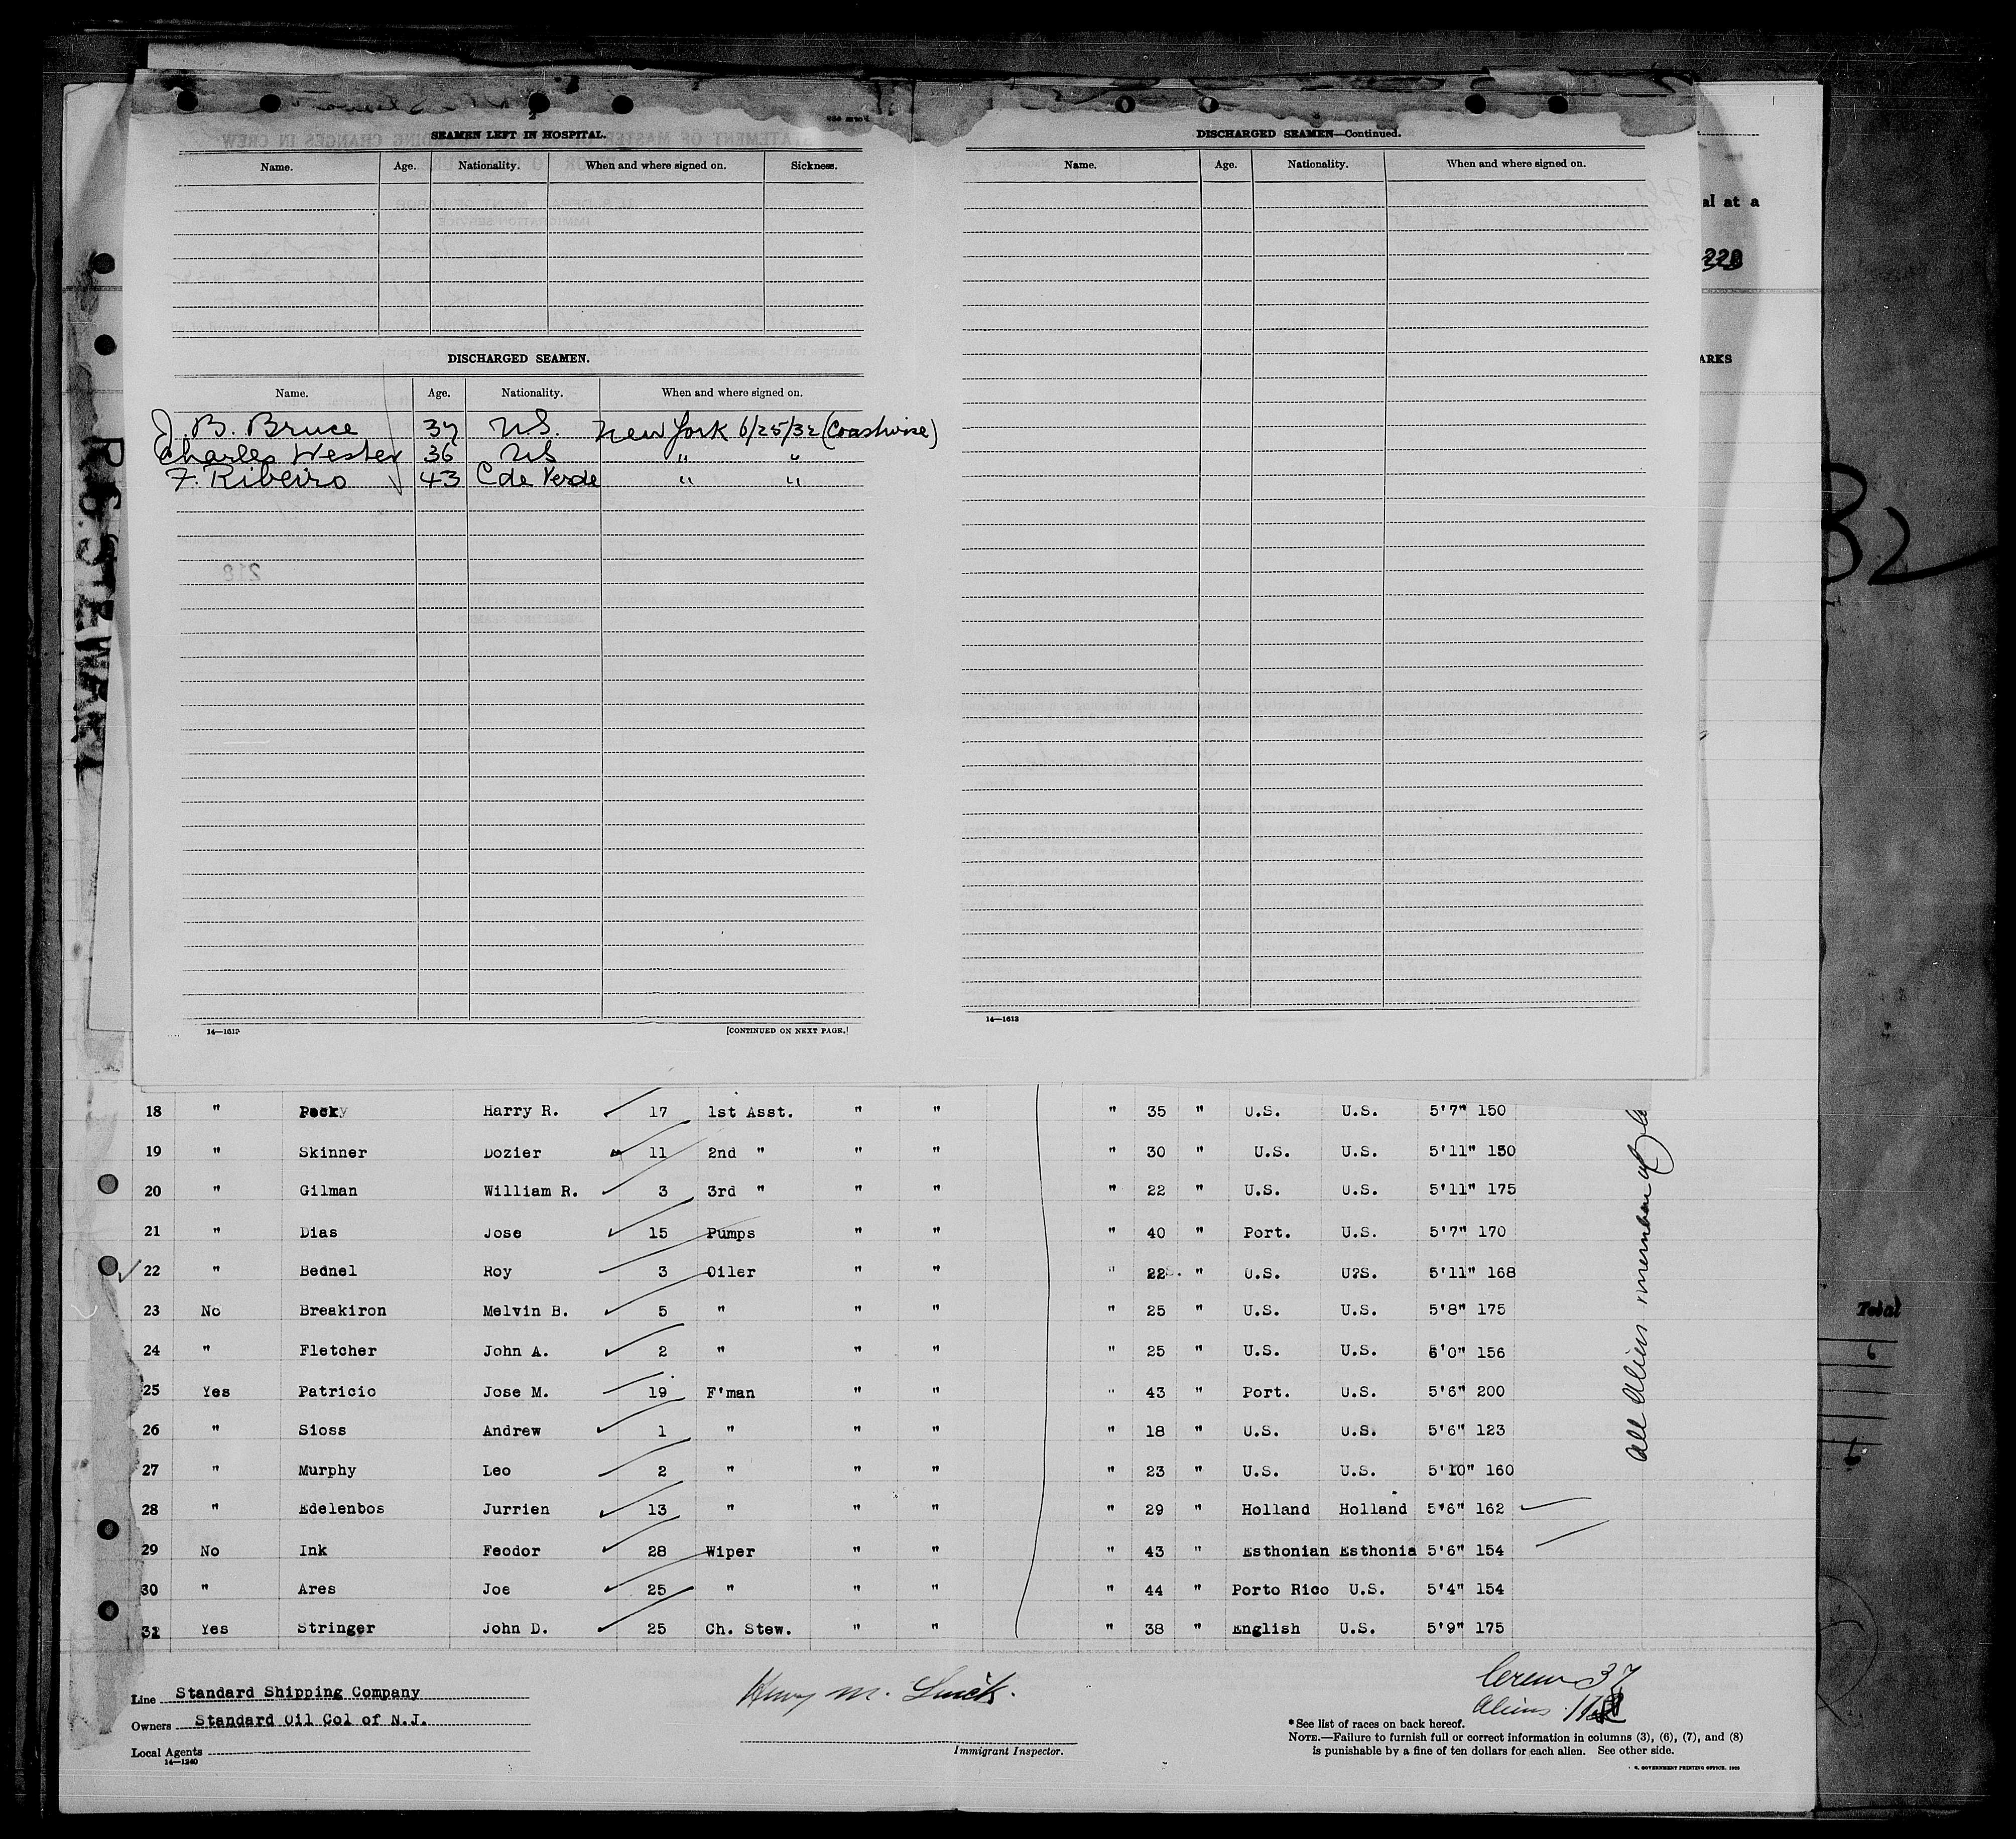 SEAMEN LEFT IN HOSPITAL.
Name. Age. Nationality. When and where signed on. Sickness.
DISCHARGED SEAMEN.
Name. Age. Nationality. When and where signed on.
J. B. Bruce 37 U.S. New York 6/25/32 (Coastwise)
Charles Wester 36 US " "
F. Ribeiro 43 C de Verde " "
218
14—1613 [CONTINUED ON NEXT PAGE.]
DISCHARGED SEAMEN—Continued.
Name. Age. Nationality. When and where signed on.
14—1613
al at a
220
ARKS
R.G. STEWART
32
Total
6
18 " Peck Harry R. 17 1st Asst. " " " 35 " U.S. U.S. 5'7" 150
19 " Skinner Dozier 11 2nd " " " " 30 " U.S. U.S. 5'11" 150
20 " Gilman William R. 3 3rd " " " " 22 " U.S. U.S. 5'11" 175
21 " Dias Jose 15 Pumps " " " 40 " Port. U.S. 5'7" 170
22 " Bednel Roy 3 Oiler " " " 22 " U.S. U?S. 5'11" 168
23 No Breakiron Melvin B. 5 " " " " 25 " U.S. U.S. 5'8" 175
24 " Fletcher John A. 2 " " " " 25 " U.S. U.S. 6'0" 156
25 Yes Patricio Jose M. 19 F'man " " " 43 " Port. U.S. 5'6" 200
26 " Sioss Andrew 1 " " " " 18 " U.S. U.S. 5'6" 123
27 " Murphy Leo 2 " " " " 23 " U.S. U.S. 5'10" 160
28 " Edelenbos Jurrien 13 " " " " 29 " Holland Holland 5'6" 162
29 No Ink Feodor 28 Wiper " " " 43 " Esthonian Esthonia 5'6" 154
30 " Ares Joe 25 " " " " 44 " Porto Rico U.S. 5'4" 154
31 Yes Stringer John D. 25 Ch. Stew. " " " 38 " English U.S. 5'9" 175
All Aliens members of
Line Standard Shipping Company
Owners Standard Oil Col of N.J.
Local Agents
14—1240
Henry M.
Immigrant Inspector.
Crew 37
Aliens
* See list of races on back hereof.
NOTE.—Failure to furnish full or correct information in columns (3), (6), (7), and (8)
is punishable by a fine of ten dollars for each alien. See other side.
GOVERNMENT PRINTING OFFICE